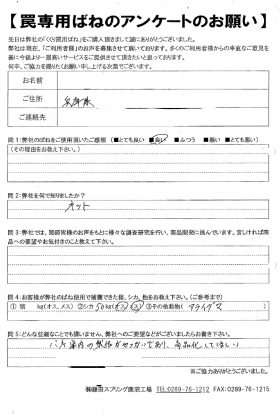 【罠専用ばねのアンケートのお願い】
先日は弊社の「くくり罠用ばね」をご購入頂きまして誠にありがとうございました。
弊社は現在、「ご利用者様」のお声を募集させて頂いております。多くのご利用者様からの率直なご意見を
基に今後より一層良いサービスをご提供させて頂きたいと思っております。
何卒、ご協力を賜りたくお願い申し上げる次第でございます。
お名前
ご住所 兵庫県
ご連絡先
問1:弊社のばねをご使用頂いたご感想 (■とても良い ■良い ■ふつう ■悪い ■とても悪い)
(その理由をお教え下さい。)
問2:弊社を何で知りましたか?
ネット
問3:弊社では、罠猟師様のお声をもとに様々な調査研究を行い、商品開発に挑んでいます。欲しければ商
品への要望やお気付きのこと教えて下さい。
問4:お客様が弊社のばね使用で捕獲できた猪、シカ、他をお教え下さい。(ご参考まで)
① 猪 kg(オス、メス) ②シカ kg(オス メス) ③その他動物( アライグマ )
問5:どんな些細なことでも構いません、弊社へのご要望などがございましたらお書き下さい。
商品化してほしい
※ご協力ありがとうございました。
㈱鎌田スプリング鹿沼工場 TEL:0289-76-1212 FAX:0289-76-1215